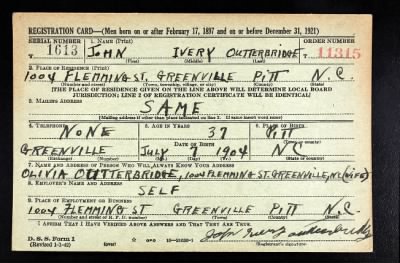 REGISTRATION CARD—(Men born on or after February 17, 1897 and on or before December 31, 1921)
SERIAL NUMBER 1. NAME (Print) ORDER NUMBER
1613 JOHN IVERY OUTTERBRIDGE 11315
(First) (Middle) (Last)
2. PLACE OF RESIDENCE (Print)
1004 FLEMMING ST. GREENVILLE PITT N.C.
(Number and street) (Town, township, village, or city) (County) (State)
[THE PLACE OF RESIDENCE GIVEN ON THE LINE ABOVE WILL DETERMINE LOCAL BOARD
JURISDICTION; LINE 2 OF REGISTRATION CERTIFICATE WILL BE IDENTICAL]
3. MAILING ADDRESS
SAME
[Mailing address if other than place indicated on line 2. If same insert word same]
4. TELEPHONE 5. AGE IN YEARS 6. PLACE OF BIRTH
NONE 37 PITT
DATE OF BIRTH (Town or county)
GREENVILLE JULY 7 1904 N.C.
(Exchange) (Number) (Mo.) (Day) (Yr.) (State or country)
7. NAME AND ADDRESS OF PERSON WHO WILL ALWAYS KNOW YOUR ADDRESS
OLIVIA OUTTERBRIDGE, 1004 FLEMMING ST. GREENVILLE, N.C. (WIFE)
8. EMPLOYER'S NAME AND ADDRESS
SELF
9. PLACE OF EMPLOYMENT OR BUSINESS
1004 FLEMMING ST GREENVILLE PITT N.C.
(Number and street or R. F. D. number) (Town) (County) (State)
I AFFIRM THAT I HAVE VERIFIED ABOVE ANSWERS AND THAT THEY ARE TRUE.
D. S. S. Form 1
(Revised 1-1-42) (over) GPO John Ivery Outterbridge
(Registrant's signature)